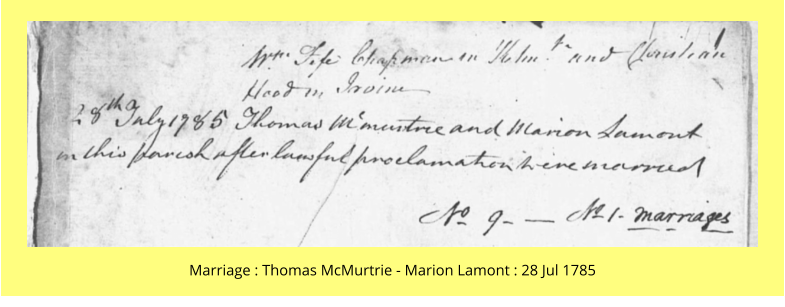 Wm Fife Chapman in Kilmnk and Christian
Hood in Irvine
28th July 1785 Thomas Mcmurtrie and Marion Lamont
in this parish after lawful proclamation were married
No 9 - — No 1 - marriages
Marriage : Thomas McMurtrie - Marion Lamont : 28 Jul 1785